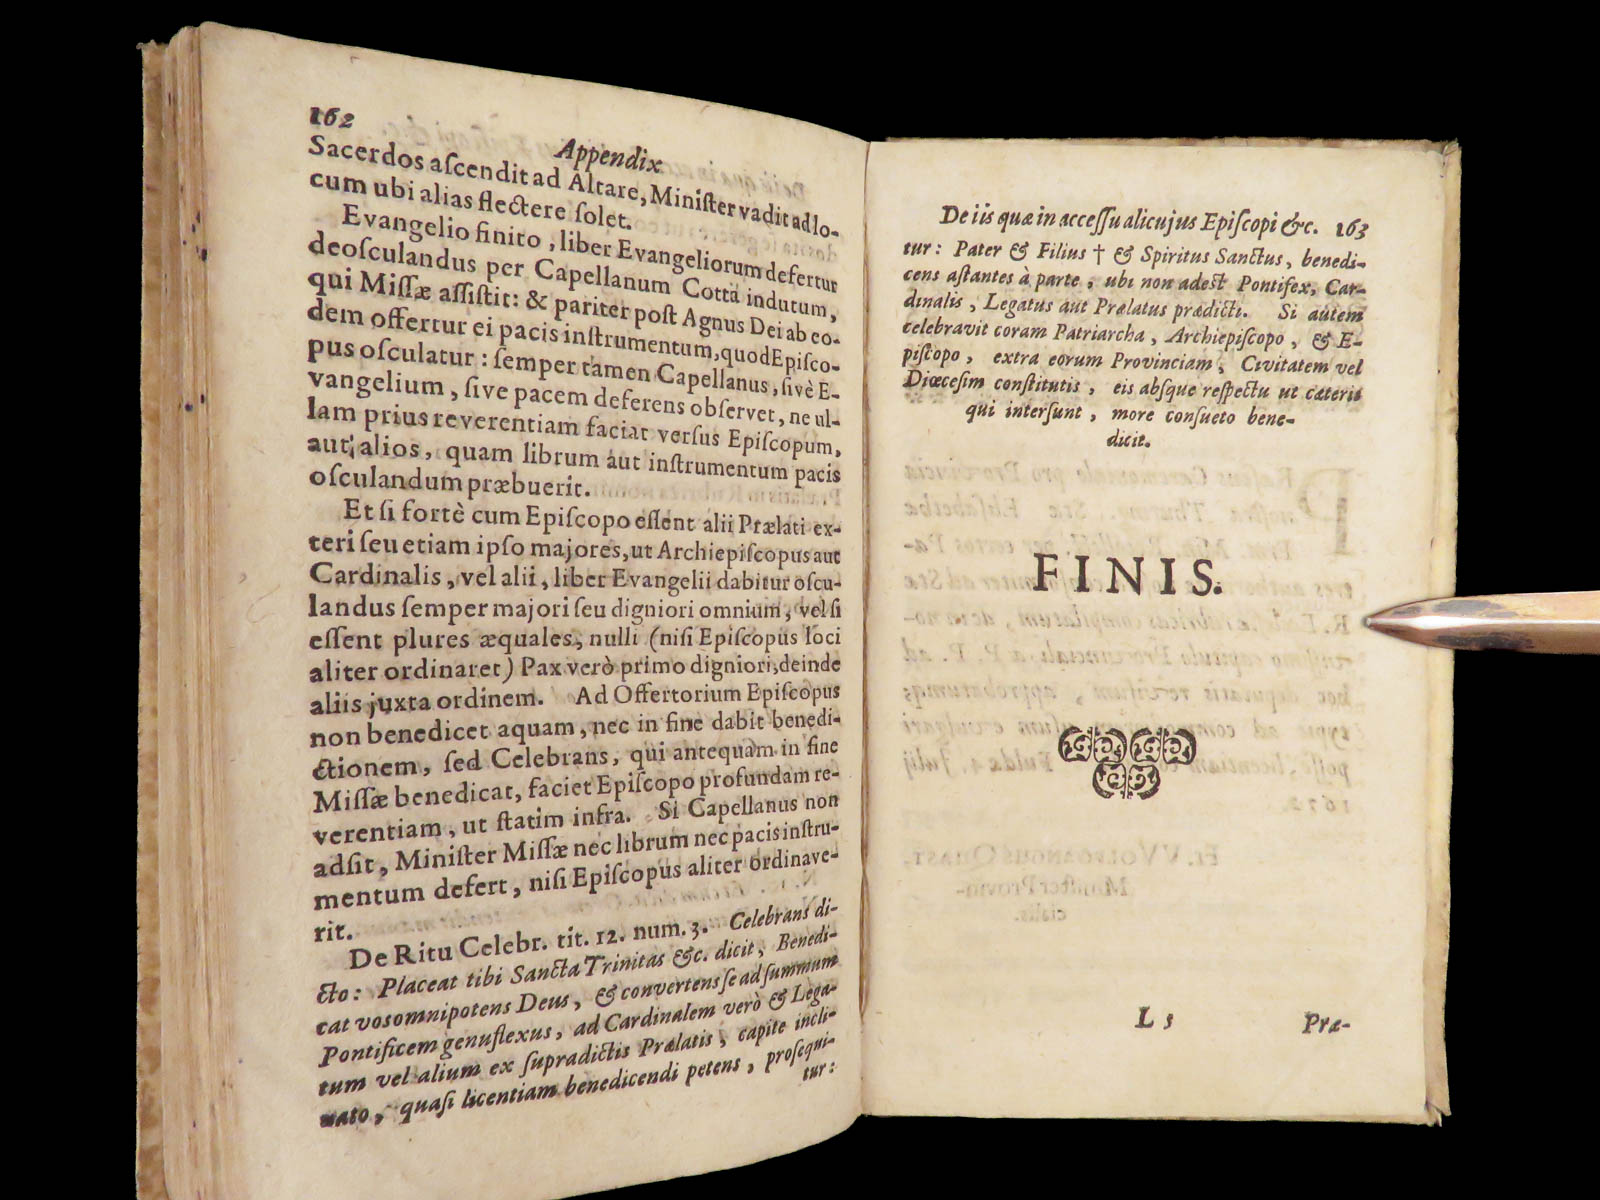 162
Appendix
Sacerdos aſcendit ad Altare, Miniſter vadit ad lo-
cum ubi alias flectere ſolet.
Evangelio finito, liber Evangeliorum defertur
deoſculandus per Capellanum Cottâ indutum,
qui Miſſæ aſſiſtit: & pariter poſt Agnus Dei ab eo-
dem offertur ei pacis inſtrumentum, quod Epiſco-
pus oſculatur: ſemper tamen Capellanus, ſivè E-
vangelium, ſive pacem deferens obſervet, ne ul-
lam prius reverentiam faciat verſus Epiſcopum,
aut alios, quam librum aut inſtrumentum pacis
oſculandum præbuerit.
Et ſi fortè cum Epiſcopo eſſent alii Prælati ex-
teri ſeu etiam ipſo majores, ut Archiepiſcopus aut
Cardinalis, vel alii, liber Evangelii dabitur oſcu-
landus ſemper majori ſeu digniori omnium, vel ſi
eſſent plures æquales, nulli (niſi Epiſcopus loci
aliter ordinaret) Pax verò primo digniori, deinde
aliis juxta ordinem. Ad Offertorium Epiſcopus
non benedicet aquam, nec in fine dabit benedi-
ctionem, ſed Celebrans, qui antequam in fine
Miſſæ benedicat, faciet Epiſcopo profundam re-
verentiam, ut ſtatim infra. Si Capellanus non
adſit, Miniſter Miſſæ nec librum nec pacis inſtru-
mentum defert, niſi Epiſcopus aliter ordinave-
rit.
De Ritu Celebr. tit. 12. num. 3. Celebrans di-
cto: Placeat tibi Sancta Trinitas &c. dicit, Benedi-
cat vos omnipotens Deus, & convertens ſe ad ſummum
Pontificem genuflexus, ad Cardinalem verò & Lega-
tum vel alium ex ſupradictis Prælatis, capite incli-
nato, quaſi licentiam benedicendi petens, proſequi-
tur:
De iis quæ in acceſſu alicujus Epiſcopi &c. 163
tur: Pater & Filius † & Spiritus Sanctus, benedi-
cens aſtantes à parte, ubi non adeſt Pontifex, Car-
dinalis, Legatus aut Prælatus prædicti. Si autem
celebravit coram Patriarcha, Archiepiſcopo, & E-
piſcopo, extra eorum Provinciam, Civitatem vel
Diœceſim conſtitutis, eis abſque reſpectu ut cæteris
qui interſunt, more conſueto bene-
dicit.
FINIS.
L 3
Præ-